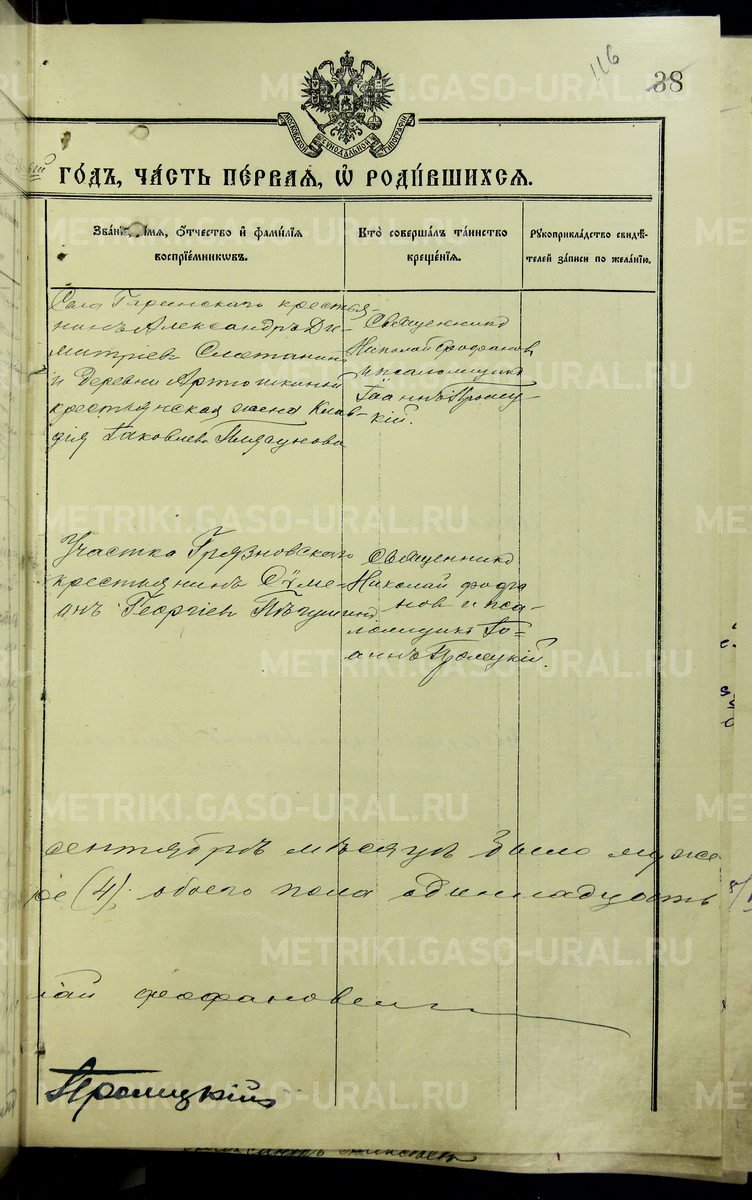 116
38
МОСКОВСКОЙ СѴНОДАЛЬНОЙ ТИПОГРАФІИ
ГОДЪ, ЧАСТЬ ПЕРВАЯ, Ѡ РОДИВШИХСЯ.
Званіе, имя, отчество и фамилія
воспріемниковъ.
Кто совершалъ таинство
крещенія.
Рукоприкладство свидѣ-
телей записи по желанію.
Села Гаринскаго крестья-
нинъ Александръ Ди-
митріевъ Сметанинъ
и деревни Артюшкиной
крестьянская жена Клав-
дія Іаковлева
Священникъ
Николай Феофановъ
и псаломщикъ
Іоаннъ Троиц-
кій.
Участка Грязновскаго
крестьянинъ Сѵме-
онъ Георгіевъ
Священникъ
Николай Феофа
новъ и пса-
ломщикъ Іо-
аннъ Троицкій.
сентябрѣ мѣсяцѣ было муже
(4), обоего пола одиннадцать
лай Феофановъ
Троицкій
METRIKI.GASO-URAL.RU